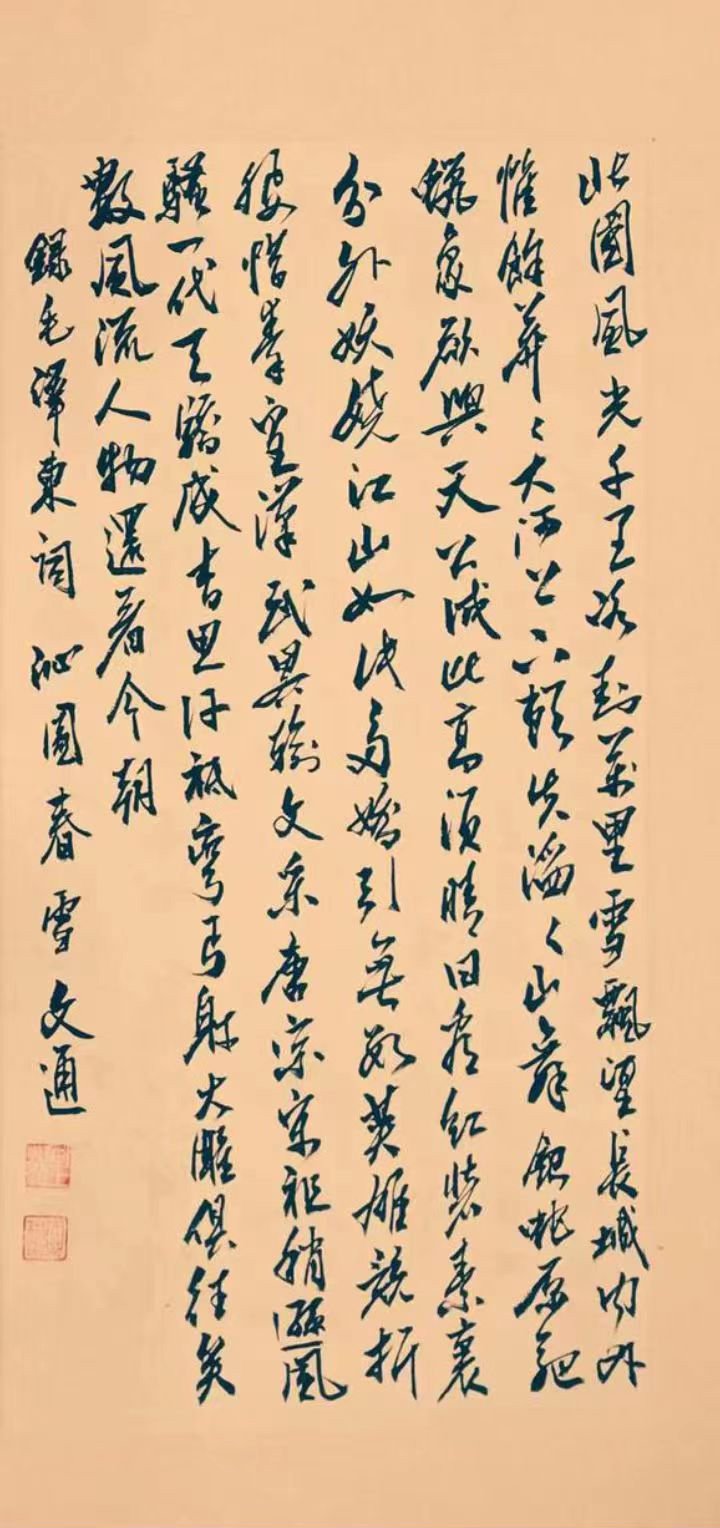 北國風光千里冰封萬里雪飄望長城內外
惟餘莽〻大河上下頓失滔〻山舞銀蛇原馳
蠟象欲與天公試比高須晴日看紅裝素裹
分外妖嬈江山如此多嬌引無數英雄競折
腰惜秦皇漢武畧輸文采唐宗宋祖稍遜風
騷一代天驕成吉思汗祗彎弓射大雕俱往矣
數風流人物還看今朝
錄毛澤東詞 沁園春雪 文通